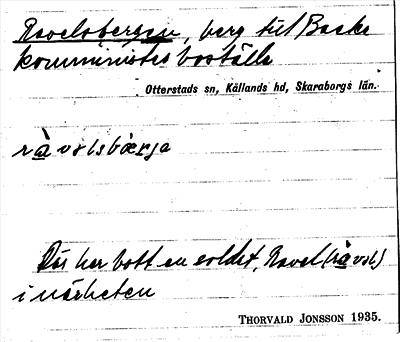 Ravelsbergen, berg till Backa
komministersboställe
Otterstads sn, Kållands hd, Skaraborgs län.
ràvəlsbærja
Där har bott en soldat, Ravel (ràvəl)
i närheten
THORVALD JONSSON 1935.